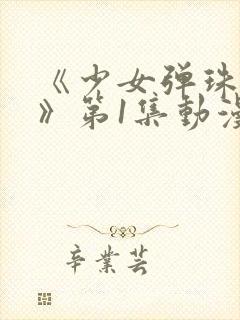 《少女弹珠
》第1集動漫
辛業芸